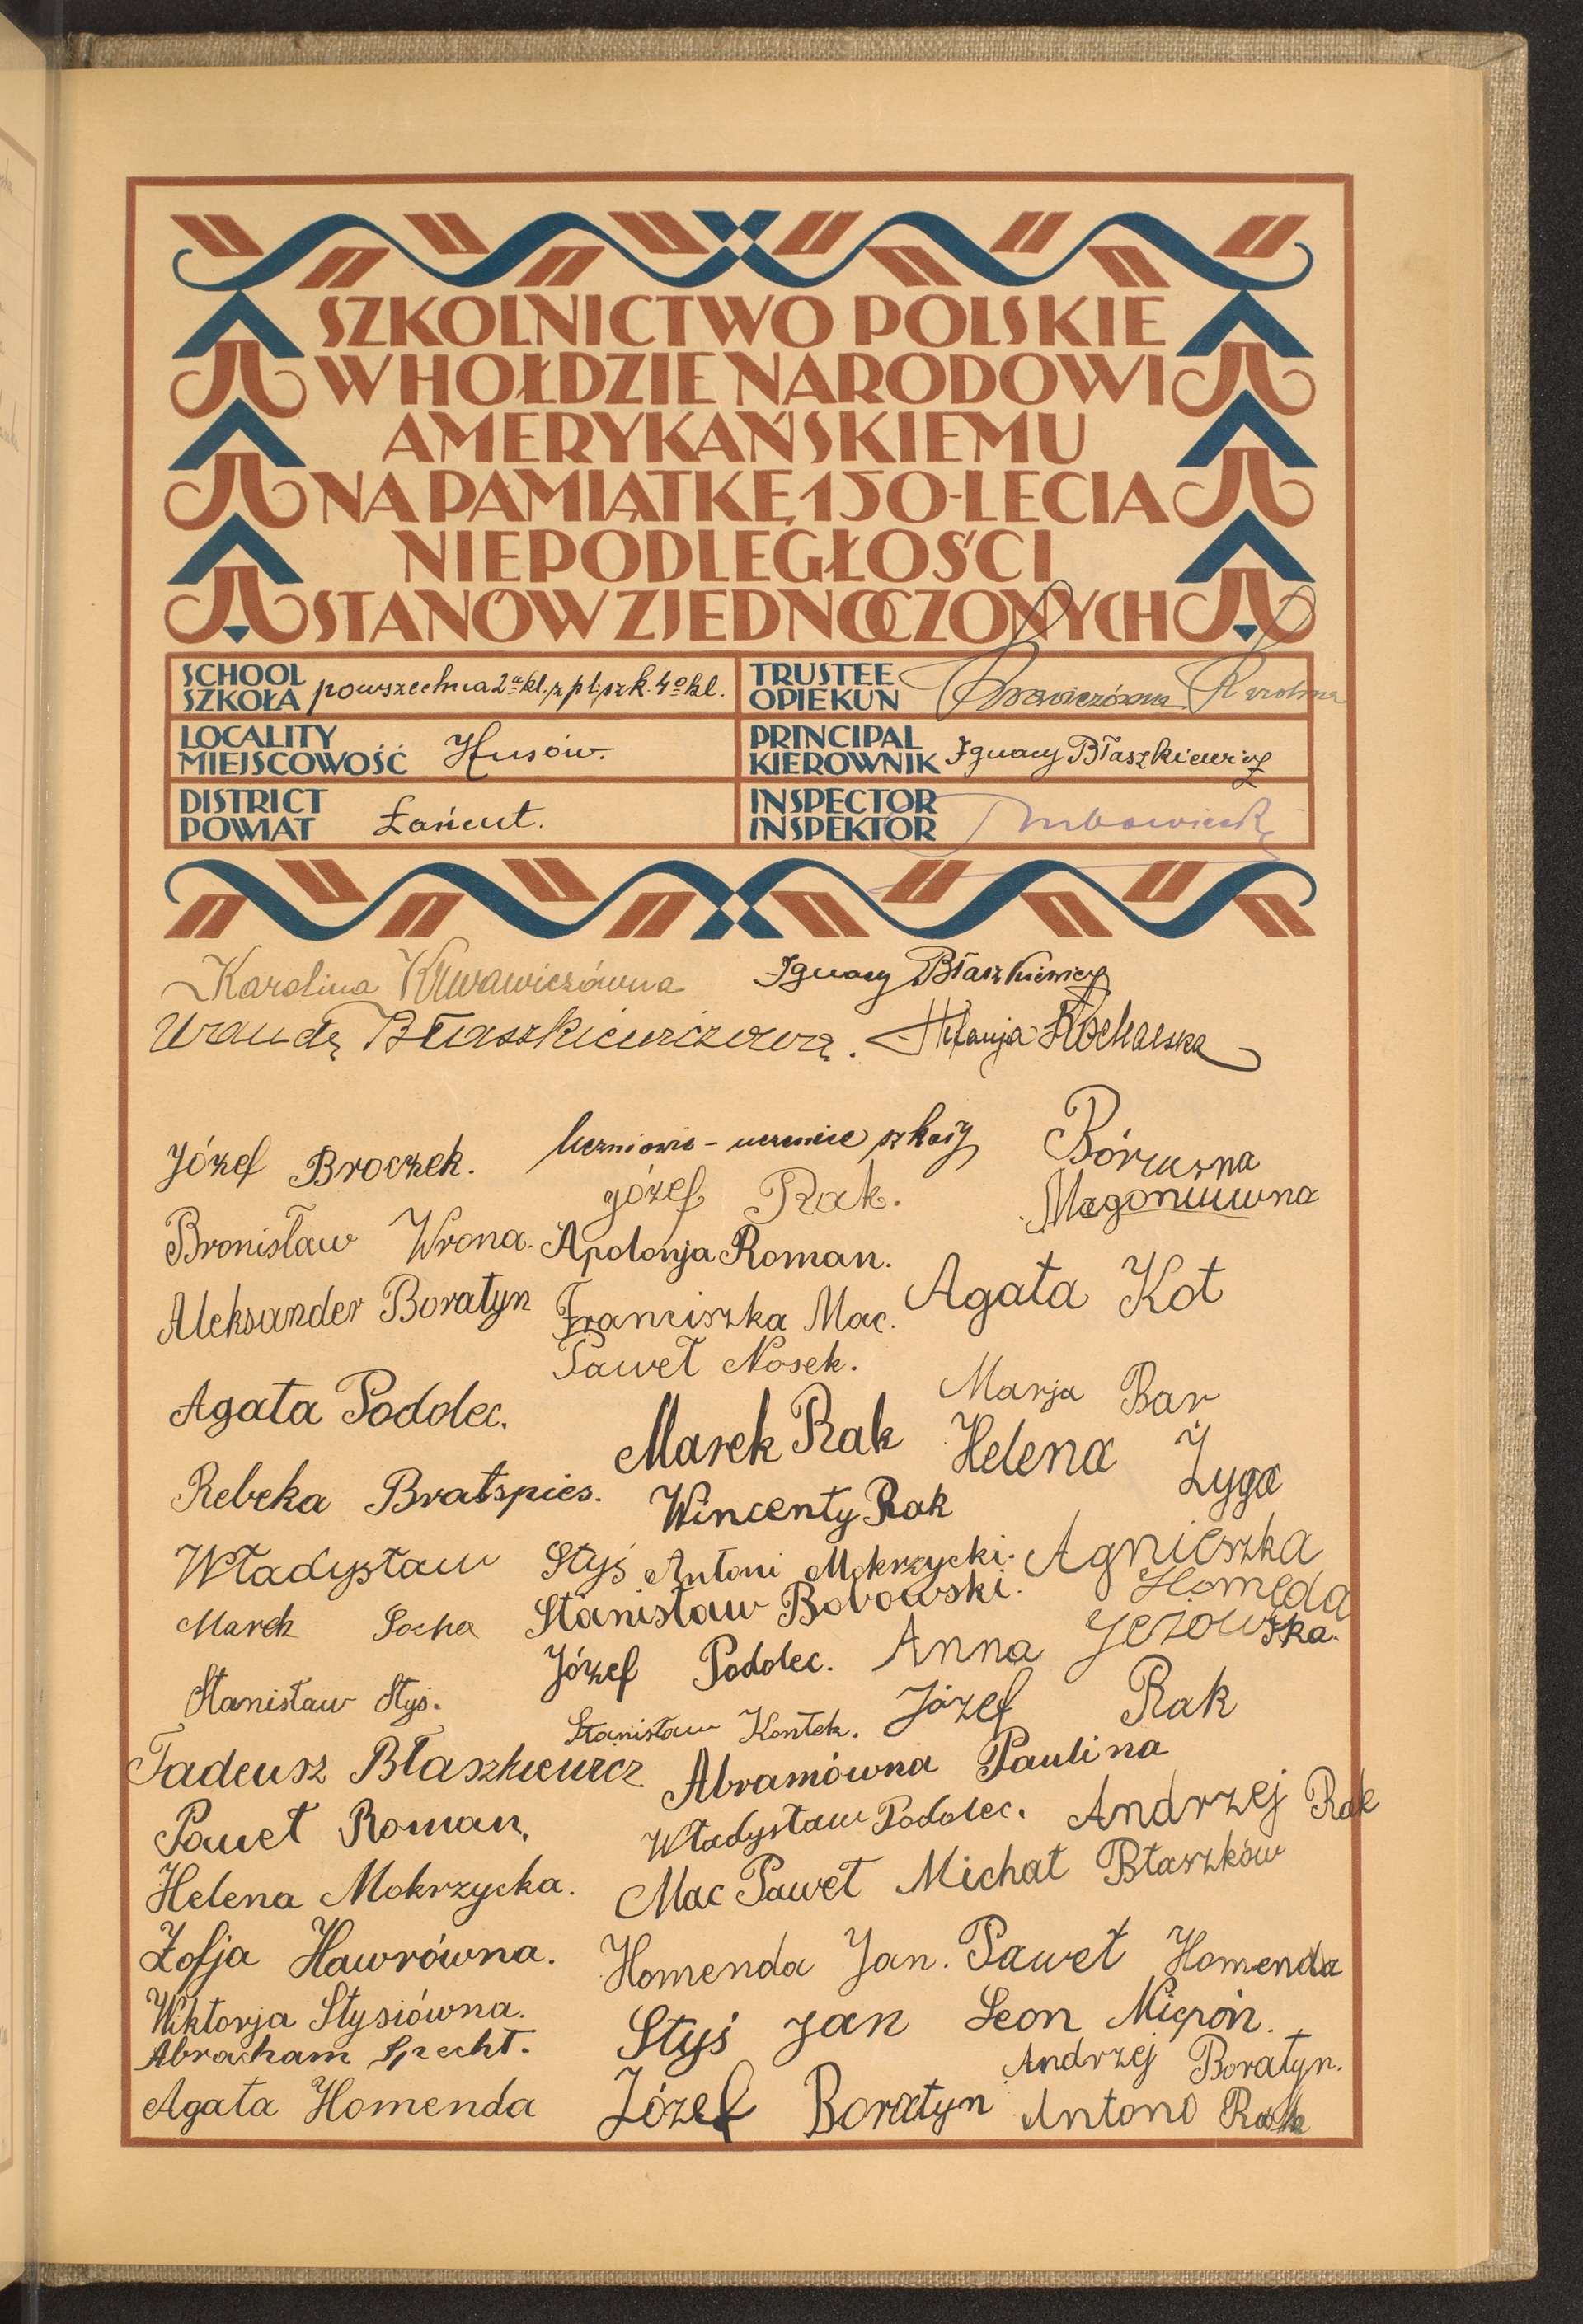 SZKOLNICTWO POLSKIE
W HOŁDZIE NARODOWI
AMERYKAŃSKIEMU
NA PAMIĄTKĘ 150-LECIA
NIEPODLEGŁOŚCI
STANÓW ZJEDNOCZONYCH
SCHOOL
SZKOŁA powszechna 2 kl. z pl. szk. 4o kl.
TRUSTEE
OPIEKUN
LOCALITY
MIEJSCOWOŚĆ Husów.
PRINCIPAL
KIEROWNIK Ignacy Błaszkiewicz
DISTRICT
POWIAT Łańcut.
INSPECTOR
INSPEKTOR
Karolina
Ignacy Błaszkiewicz
Wanda Błaszkiewiczowa.
Stefanja
Uczniowie - uczenice szkoły
Józef Broczek.
Józef Rak.
Bronisław Wrona.
Apolonja Roman.
Agata Kot
Aleksander Boratyn
Franciszka Mac.
Paweł Nosek.
Marja Bar
Agata Podolec.
Marek Rak
Helena Żyga
Rebeka Bratspies.
Wincenty Rak
Władysław Styś
Antoni Mokrzycki.
Agnieszka Homęda
Marek Socha
Stanisław Bobowski.
Józef Podolec.
Anna Jeżowska.
Stanisław Styś.
Stanisław Kontek.
Józef Rak
Tadeusz Błaszkiewicz
Abramówna Paulina
Paweł Roman.
Władysław Podolec.
Andrzej Rak
Helena Mokrzycka.
Mac Paweł
Michał Błaszków
Zofja Hawrówna.
Homenda Jan.
Paweł Homenda
Wiktorja Stysiówna.
Styś Jan
Leon
Abracham Specht.
Andrzej Boratyn.
Agata Homenda
Józef Boratyn
Antono Rak